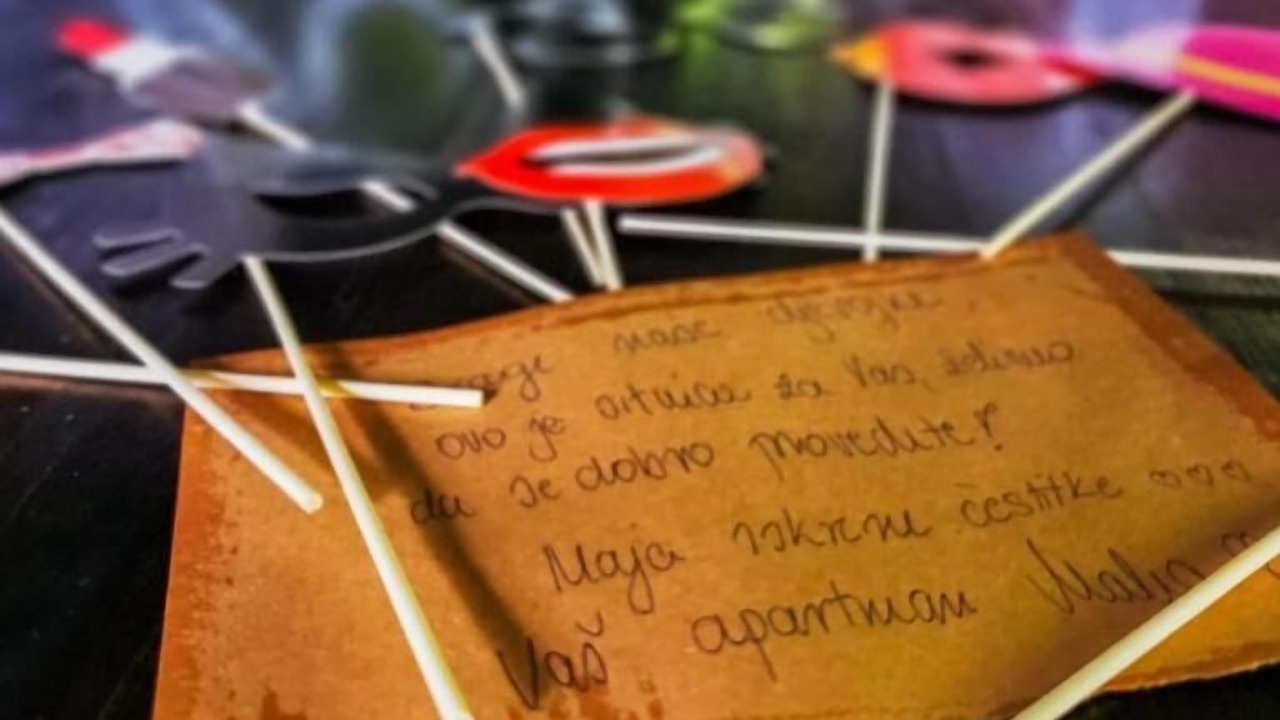 Drage naše djevojke,
ovo je sitnica za Vas, želimo
da se dobro provedete!
Maja iskrene čestitke ♡♡♡
Vaš apartman